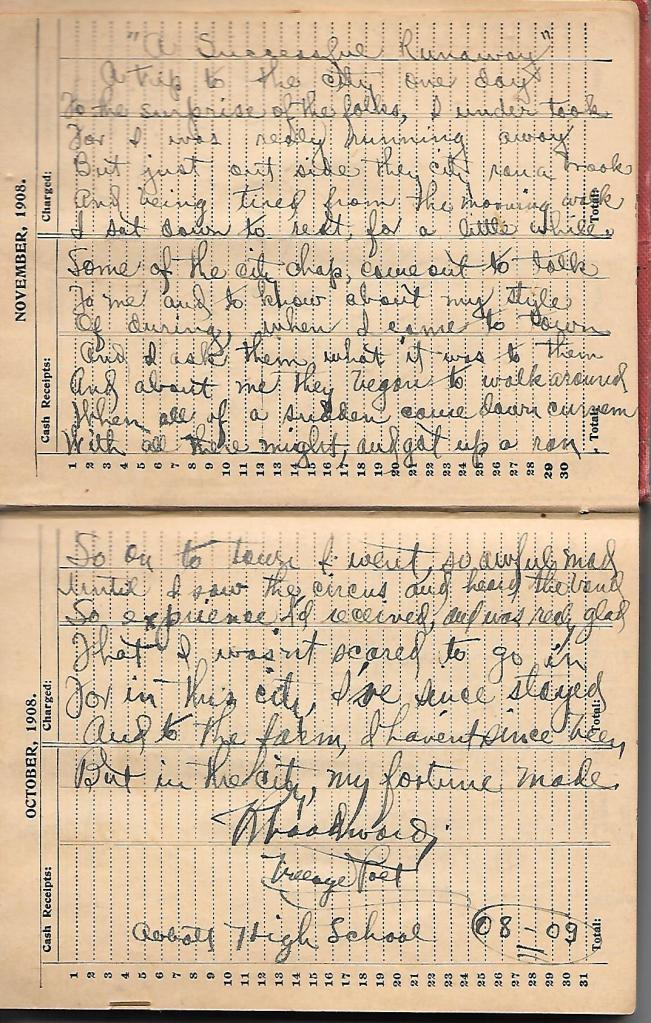 "A Successful Runaway"
A trip to the city one day
To the surprise of the folks, I under took
For I was really running away
But just out side the city ran a brook
And being tired from the morning walk
I sat down to rest, for a little while.
Some of the city chap, come out to talk
To me and to know about my style
Of during, when I came to town
And I ask them what it was to them
And about me they began to walk around
When all of a sudden come down
With all there might, and got up a ran.
NOVEMBER, 1908.
Charged:
Cash Receipts:
Total:
Total:
1 2 3 4 5 6 7 8 9 10 11 12 13 14 15 16 17 18 19 20 21 22 23 24 25 26 27 28 29 30
So on to town I went, so awful mad
Until I saw the circus and heard the band
So expirience I'd received, and was real glad
That I wasn't scared to go in
For in this city, I've since stayed
And to the farm, I havent since been,
But in the city, my fortune made.
Woodward,
Poet
Abbott High School 08-09
OCTOBER, 1908.
Charged:
Cash Receipts:
Total:
Total:
1 2 3 4 5 6 7 8 9 10 11 12 13 14 15 16 17 18 19 20 21 22 23 24 25 26 27 28 29 30 31